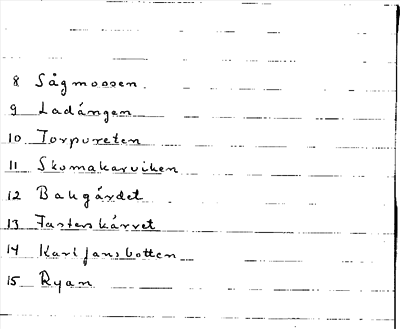 8 Sågmossen
9 Ladängen
10 Torpureten
11 Skomakarviken
12 Bakgärdet
13 Fasterskärret
14 Karl Jansbotten
15 Ryan